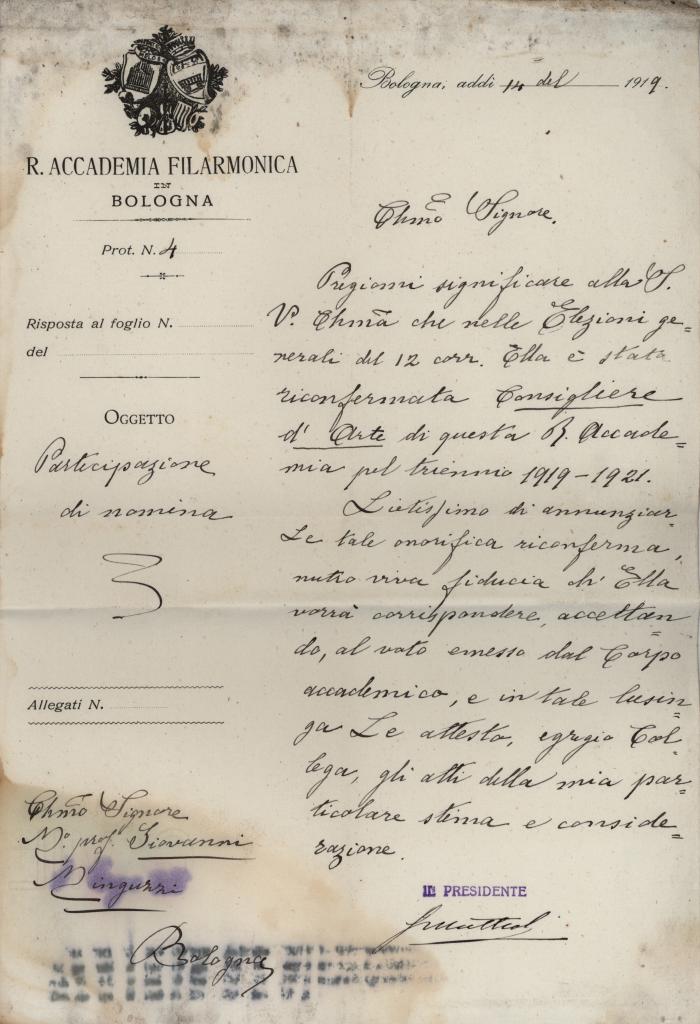 Bologna, addì 14 del 1919.
R. ACCADEMIA FILARMONICA
IN
BOLOGNA
Prot. N. 4
Risposta al foglio N.
del
OGGETTO
Partecipazione
di nomina
Allegati N.
Chmo Signore
Mo. prof. Giovanni
Minguzzi
Bologna
Chmo Signore,
Pregiomi significare alla S.
V. Chma che nelle Elezioni ge=
nerali del 12 corr. Ella è stata
riconfermata Consigliere
d'Arte di questa R. Accade=
mia pel triennio 1919-1921.
Lietissimo di annunziar=
Le tale onorifica riconferma,
nutro viva fiducia ch'Ella
vorrà corrispondere, accettan=
do, al voto emesso dal Corpo
accademico, e in tale lusin=
ga Le attesto, egregio Col=
lega, gli atti della mia par=
ticolare stima e conside=
razione.
IL PRESIDENTE